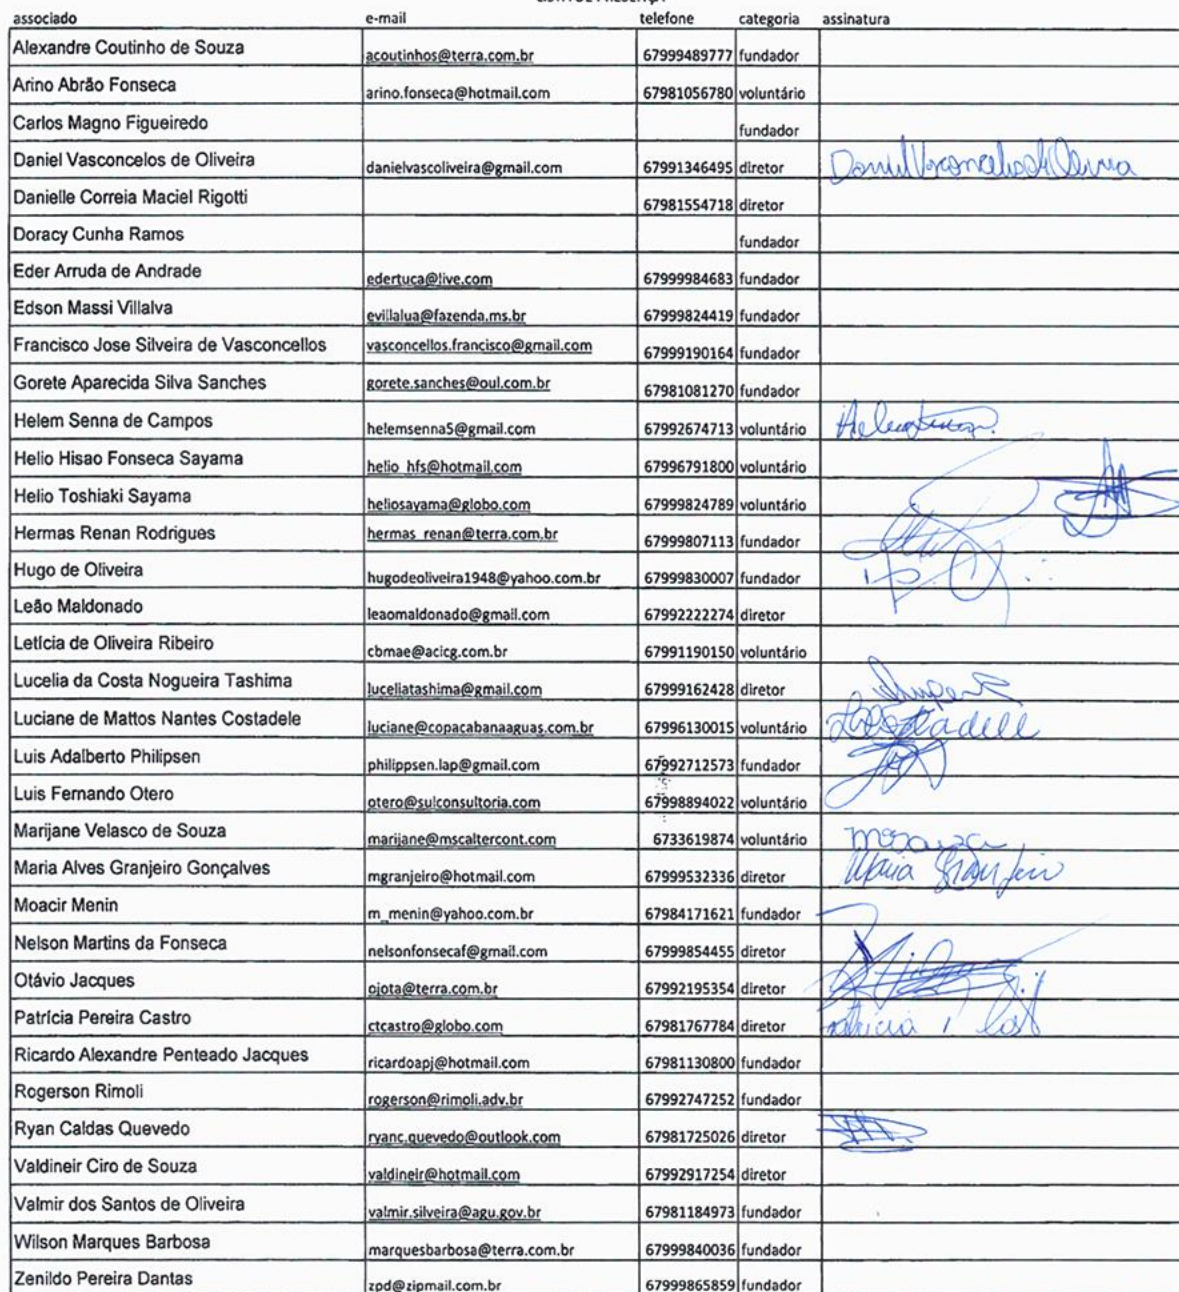 LISTA DE PRESENÇA
associado e-mail telefone categoria assinatura
Alexandre Coutinho de Souza acoutinhos@terra.com.br 67999489777 fundador
Arino Abrão Fonseca arino.fonseca@hotmail.com 67981056780 voluntário
Carlos Magno Figueiredo fundador
Daniel Vasconcelos de Oliveira danielvascoliveira@gmail.com 67991346495 diretor Daniel Vasconcelos de Oliveira
Danielle Correia Maciel Rigotti 67981554718 diretor
Doracy Cunha Ramos fundador
Eder Arruda de Andrade edertuca@live.com 67999984683 fundador
Edson Massi Villalva evillalua@fazenda.ms.br 67999824419 fundador
Francisco Jose Silveira de Vasconcellos vasconcellos.francisco@gmail.com 67999190164 fundador
Gorete Aparecida Silva Sanches gorete.sanches@oul.com.br 67981081270 fundador
Helem Senna de Campos helemsenna5@gmail.com 67992674713 voluntário
Helio Hisao Fonseca Sayama helio_hfs@hotmail.com 67996791800 voluntário
Helio Toshiaki Sayama heliosayama@globo.com 67999824789 voluntário
Hermas Renan Rodrigues hermas_renan@terra.com.br 67999807113 fundador
Hugo de Oliveira hugodeoliveira1948@yahoo.com.br 67999830007 fundador
Leão Maldonado leaomaldonado@gmail.com 67992222274 diretor
Letícia de Oliveira Ribeiro cbmae@acicg.com.br 67991190150 voluntário
Lucelia da Costa Nogueira Tashima luceliatashima@gmail.com 67999162428 diretor
Luciane de Mattos Nantes Costadele luciane@copacabanaaguas.com.br 67996130015 voluntário
Luis Adalberto Philipsen philippsen.lap@gmail.com 67992712573 fundador
Luis Fernando Otero otero@sulconsultoria.com 67998894022 voluntário
Marijane Velasco de Souza marijane@mscaltercont.com 6733619874 voluntário
Maria Alves Granjeiro Gonçalves mgranjeiro@hotmail.com 67999532336 diretor Maria Granjeiro
Moacir Menin m_menin@yahoo.com.br 67984171621 fundador
Nelson Martins da Fonseca nelsonfonsecaf@gmail.com 67999854455 diretor
Otávio Jacques ojota@terra.com.br 67992195354 diretor
Patrícia Pereira Castro ctcastro@globo.com 67981767784 diretor
Ricardo Alexandre Penteado Jacques ricardoapj@hotmail.com 67981130800 fundador
Rogerson Rimoli rogerson@rimoli.adv.br 67992747252 fundador
Ryan Caldas Quevedo ryanc.quevedo@outlook.com 67981725026 diretor
Valdineir Ciro de Souza valdineir@hotmail.com 67992917254 diretor
Valmir dos Santos de Oliveira valmir.silveira@agu.gov.br 67981184973 fundador
Wilson Marques Barbosa marquesbarbosa@terra.com.br 67999840036 fundador
Zenildo Pereira Dantas zpd@zipmail.com.br 67999865859 fundador